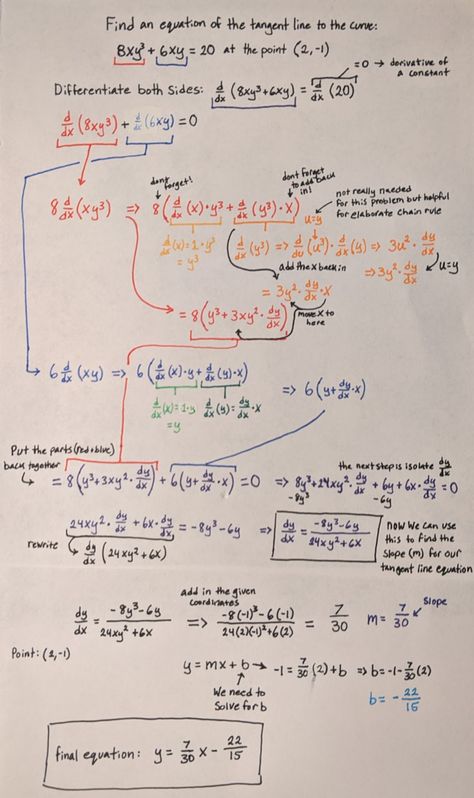 Find an equation of the tangent line to the curve:
8xy³ + 6xy = 20 at the point (2,-1)
=0 → derivative of
a constant
Differentiate both sides: d/dx (8xy³+6xy) = d/dx (20)
d/dx (8xy³) + d/dx (6xy) = 0
dont
forget!
dont forget
to add back
in!
8 d/dx (xy³) => 8(d/dx (x)·y³ + d/dx (y³)·x)
u=y
not really needed
for this problem but helpful
for elaborate chain rule
d/dx (x) = 1·y³
= y³
d/dx (y³) => d/du (u³)·d/dx (y) => 3u²·dy/dx
add the x back in
=> 3y²·dy/dx
u=y
= 3y²·dy/dx·x
= 8(y³+3xy²·dy/dx)
move x to
here
6 d/dx (xy) => 6(d/dx (x)·y + d/dx (y)·x) => 6(y+dy/dx·x)
d/dx (x) = 1·y
= y
d/dx (y) = dy/dx·x
Put the parts (red+blue)
back together
the next step is isolate dy/dx
= 8(y³+3xy²·dy/dx) + 6(y+dy/dx·x) = 0 => 8y³+24xy²·dy/dx + 6y + 6x·dy/dx = 0
-8y³ -6y
24xy²·dy/dx + 6x·dy/dx = -8y³-6y => dy/dx = -8y³-6y/24xy²+6x
rewrite
dy/dx (24xy²+6x)
now we can use
this to find the
slope (m) for our
tangent line equation
add in the given
coordinates
dy/dx = -8y³-6y/24xy²+6x => -8(-1)³-6(-1)/24(2)(-1)²+6(2) = 7/30 m = 7/30
slope
Point: (2,-1)
y = mx + b → -1 = 7/30(2)+b => b = -1-7/30(2)
We need to
solve for b
b = -22/15
final equation: y = 7/30 x - 22/15